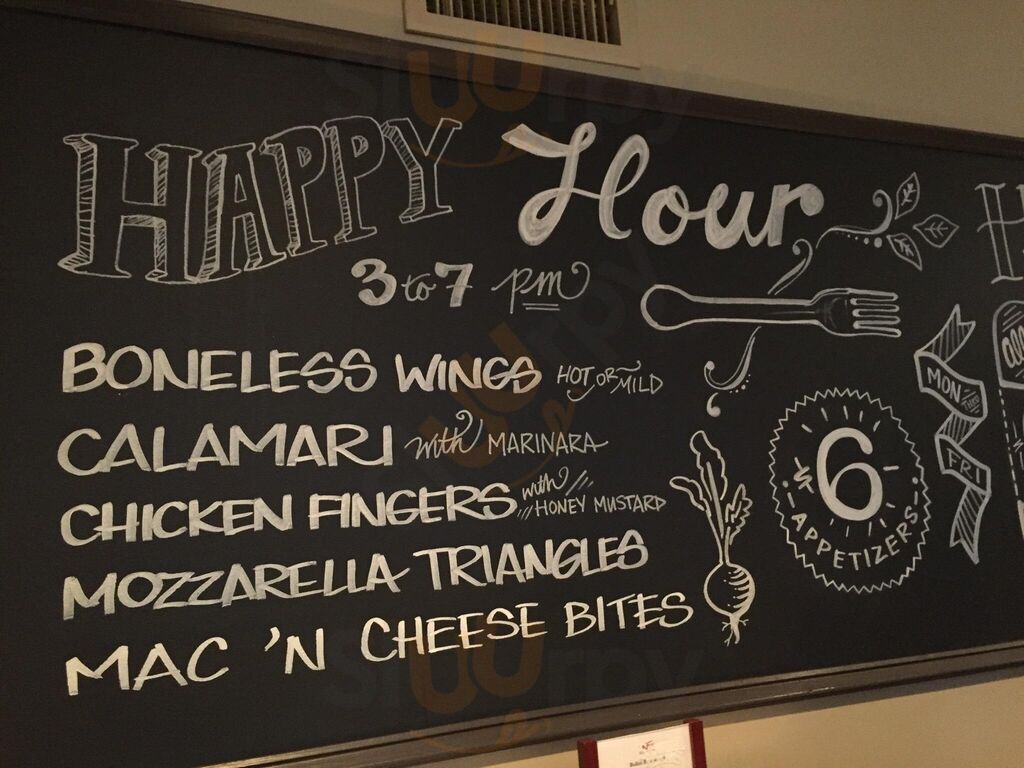 HAPPY Hour
3 to 7 pm
BONELESS WINGS HOT OR MILD
CALAMARI with MARINARA
CHICKEN FINGERS with HONEY MUSTARD
MOZZARELLA TRIANGLES
MAC 'N CHEESE BITES
$6
APPETIZERS
MON
THRU
FRI
H
sluurpy
sluurpy
sluurpy